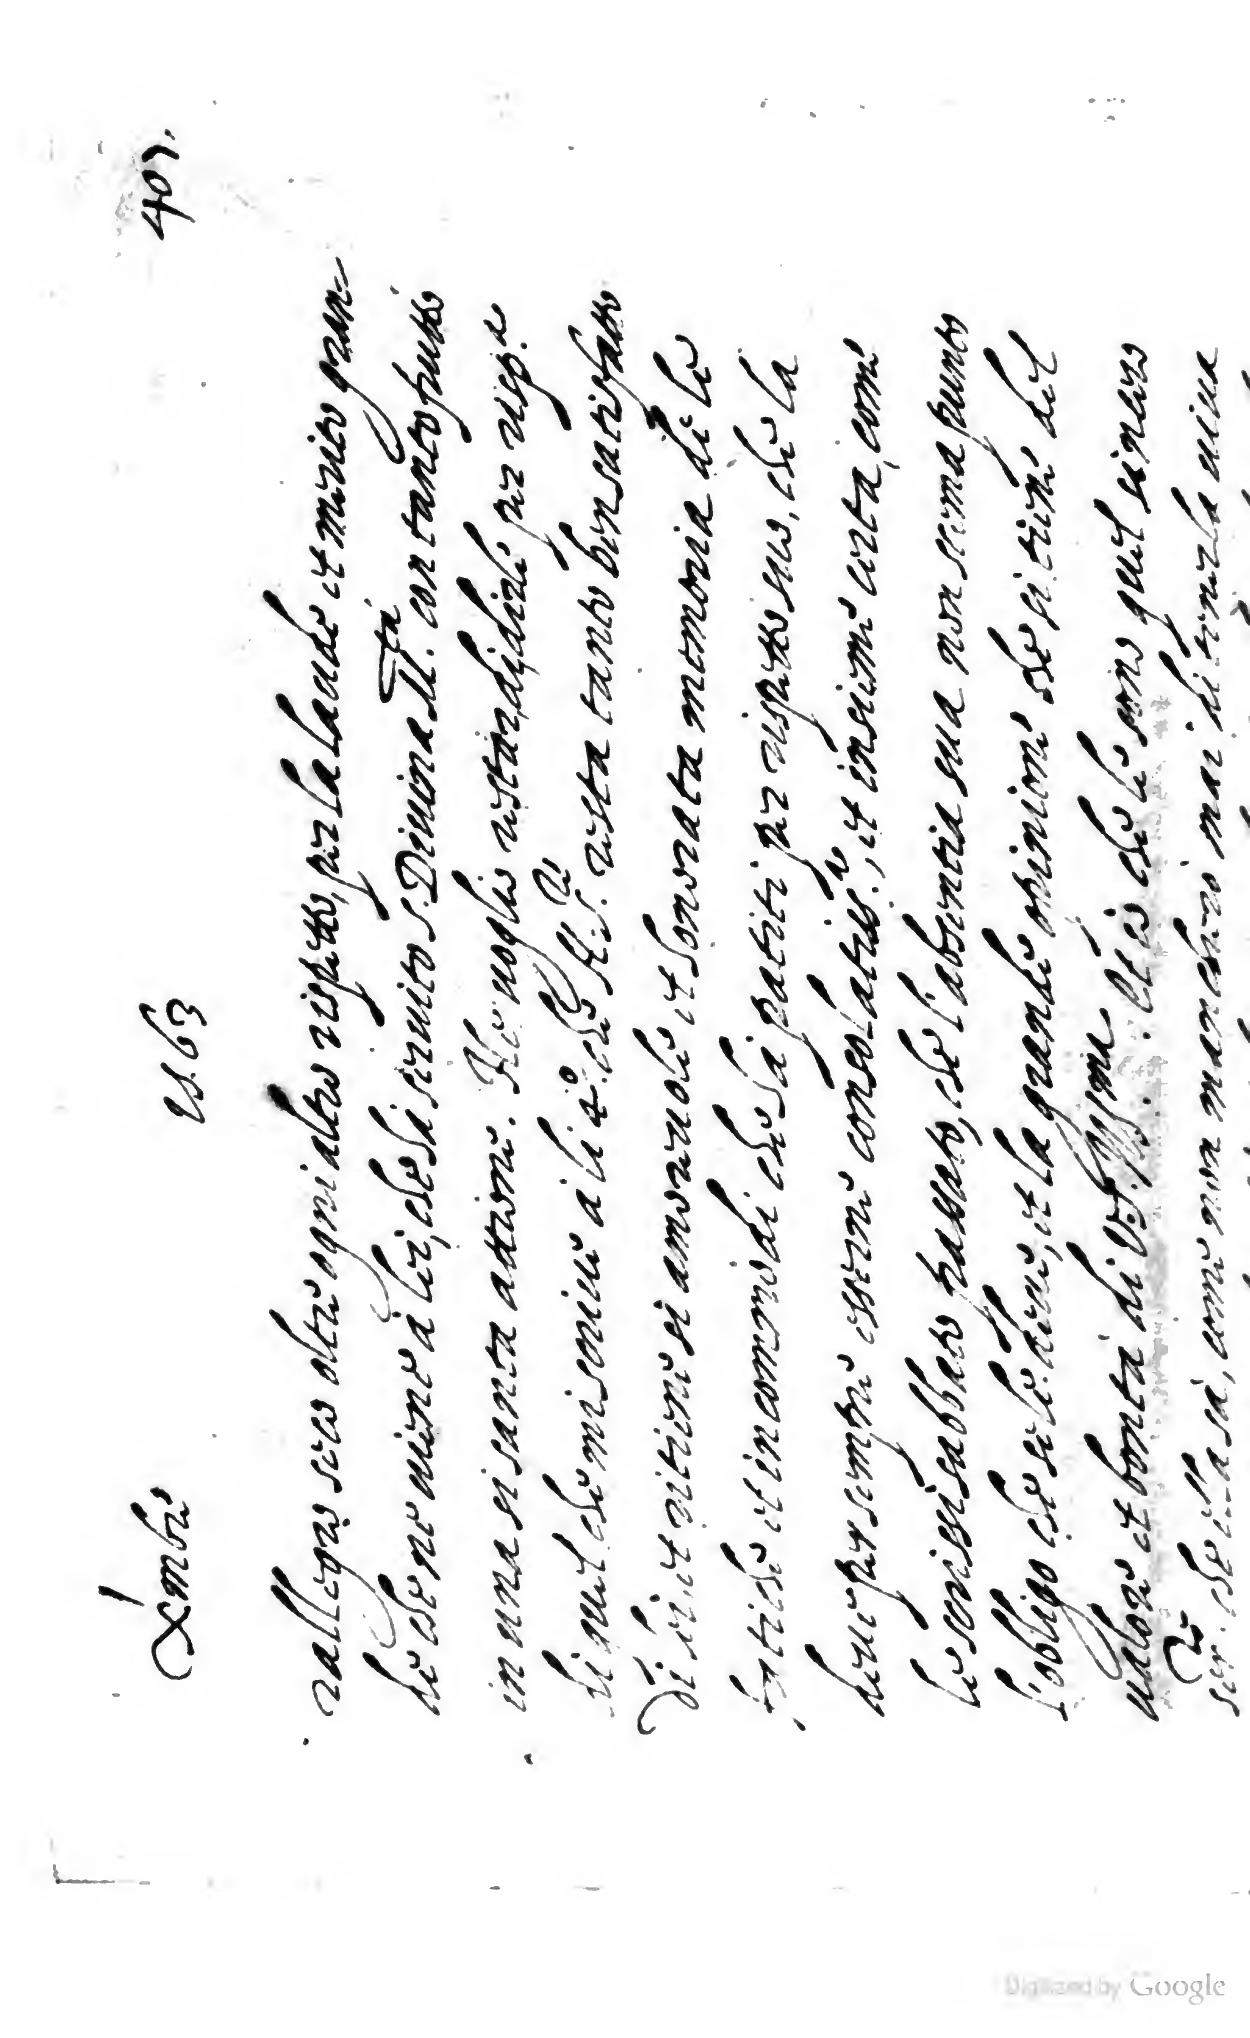 Xmbre 1563 401.
rallegro seco oltre ogni altro rispetto, per la laude et merito gran=
de che ne viene à lei, che ha servito S. Divina M.tà con tanto frutto
in una si santa attione. Ho voglio ristar, di dirle per risp.a
di quel che mi scrive à li 4. che resta tanto ben satisfatto
De le attioni si amorevole et honorata memoria de le
fatiche et incommodi che ha patiti per rispetto suo, che la
deve per sempre esserne consolatiss.a, et insieme certa, come
le scrissi sabbato passato, che l'absentia sua non scema punto
l'obligo che se le deve, et la grande opinione che si tiene del
valore et bontà di V.S. Ill.ma. Et è che le sono quel sincero
ser.re che ella sà, come non mancherò mai di tenerla viva
Digitized by Google